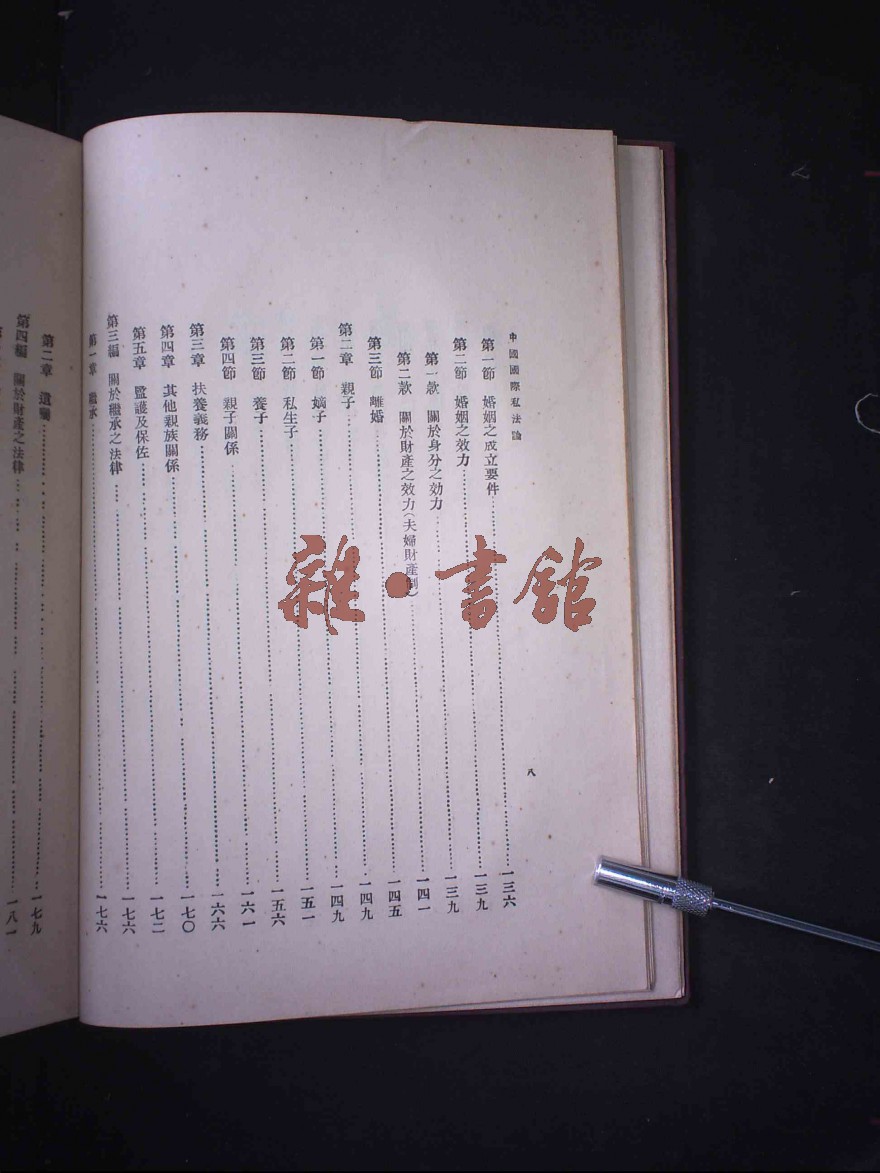 中國國際私法論 八
第一節 婚姻之成立要件……一三六
第二節 婚姻之效力……一三九
第一款 關於身分之効力……一三九
第二款 關於財產之效力(夫婦財產制)……一四一
第三節 離婚……一四五
第二章 親子……一四九
第一節 嫡子……一四九
第二節 私生子……一五一
第三節 養子……一五六
第四節 親子關係……一六一
第三章 扶養義務……一六六
第四章 其他親族關係……一七〇
第五章 監護及保佐……一七二
第三編 關於繼承之法律……一七六
第一章 繼承……一七六
第二章 遺囑……一七九
第四編 關於財產之法律……一八一
雜·書館